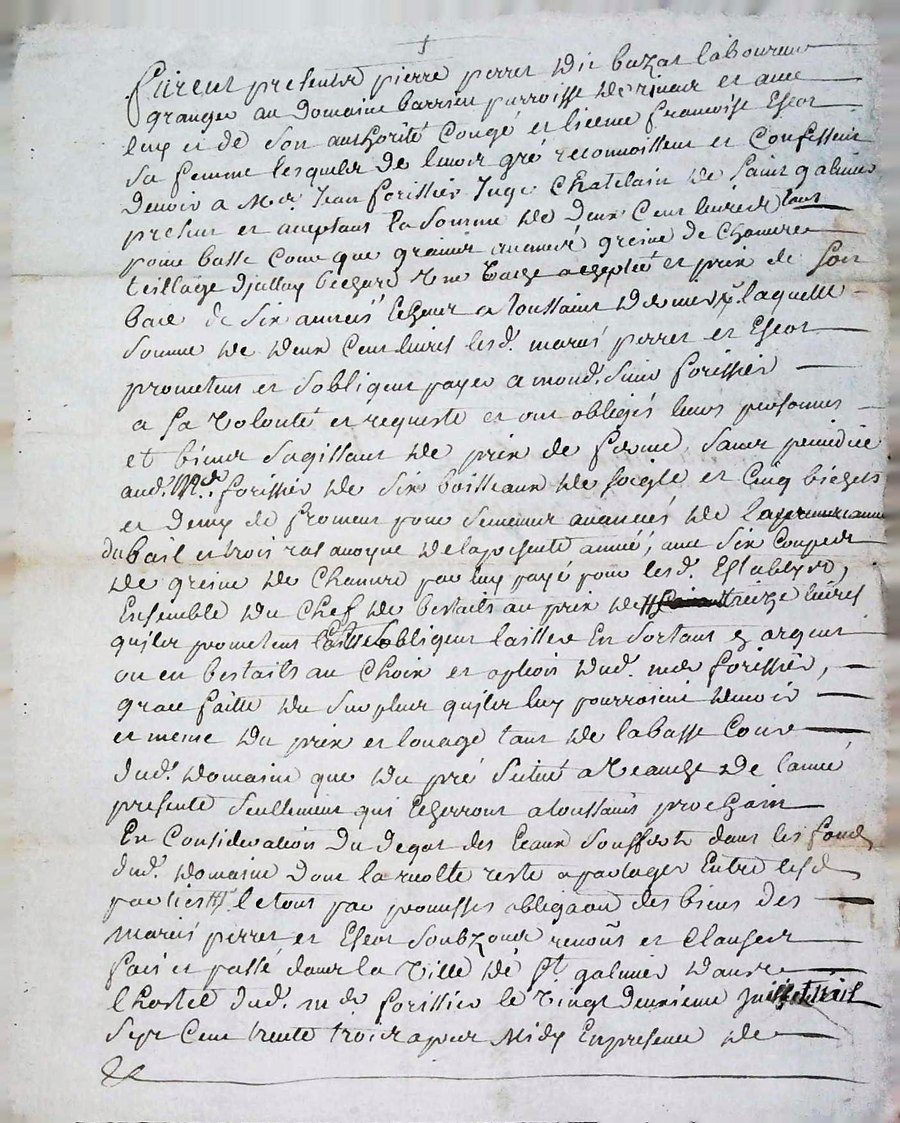 furent presents pierre perret dit buzat laboureur
granger au domaine barrieu parroisse de rivoir et avec
luy et de son authorité congé et licence francoise Escot
sa femme lesquels de leur gré reconnoissent et confessent
devoir a Mr. Jean forissier Juge Chatelain de saint galmier
present et acceptant la somme de deux cent livres tant
pour basse cour que grains graine de chanvre
teillage vache et prix de son
bail de six années Echeus a toussaint dernier laquelle
somme de deux cent livres lesd. mariés perret et Escot
prometent et sobligent payer a mond. sieur forissier
a sa volonté et requeste et ont obligés leurs personnes
et biens sagissant de prix de ferme, sans prejudice
aud. Mr. forissier de six boisseaux de soigle et cinq bichets
et demy de froment pour semence avancées de la premiere année
du bail et trois ras avoyne de la presente année, avec six coupes
de greine de chanvre par luy payé pour lesd.
Ensemble du chef de bestails au prix de treize livres
quils prometent sobligent laisser En sortant argent
ou en bestails au choix et dud. mr forissier,
grace faitte du surplus quils luy pourroient devoir
et meme du prix et louage tant de la basse cour
dud. domaine que du pré de lanné
presente seullement qui Echerront a toussaint prochain
En consideration du degat des Eaux souffert dans les fonds
dud. domaine dont la recolte reste a partager Entre lesd
parties le tout par promesses obligaon des biens des
mariés perret et Escot soubz renons et clauses
fait et passé dans la ville de St galmier dans
lhostel dud. mr forissier le vingt deuxieme juillet mil
sept cent trente trois apres Midy En presence de